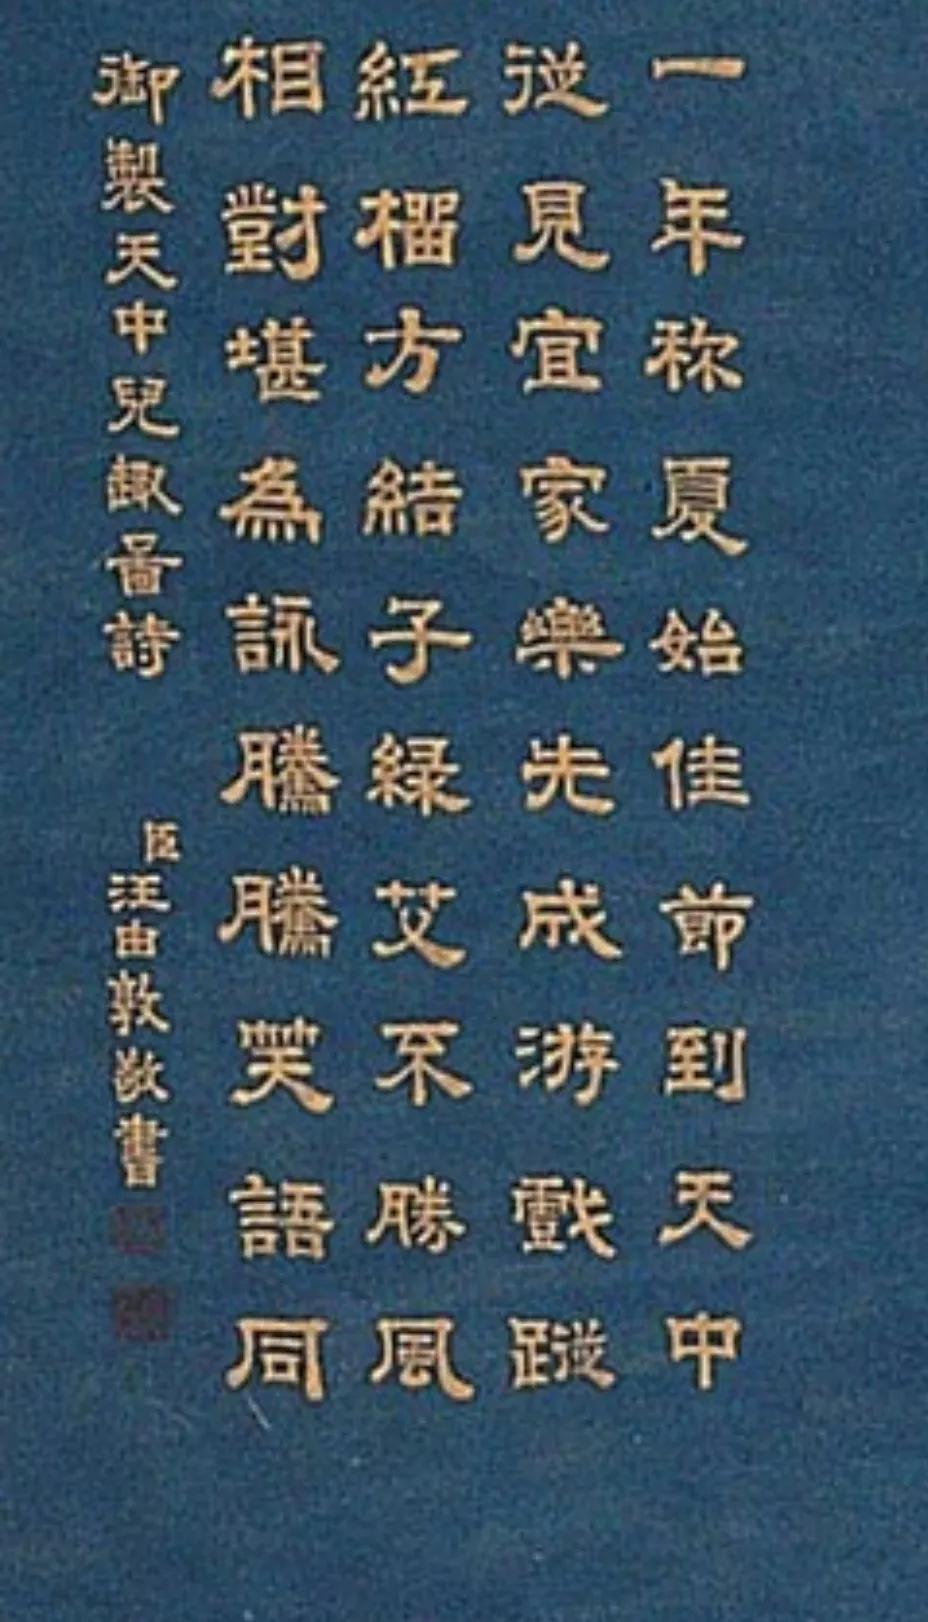 一年称夏始佳節到天中
從見宜家樂先成游戲蹤
紅榴方結子綠艾不勝風
相對堪為詠騰騰笑語同
御製天中兒趣啚詩
臣汪由敦敬書